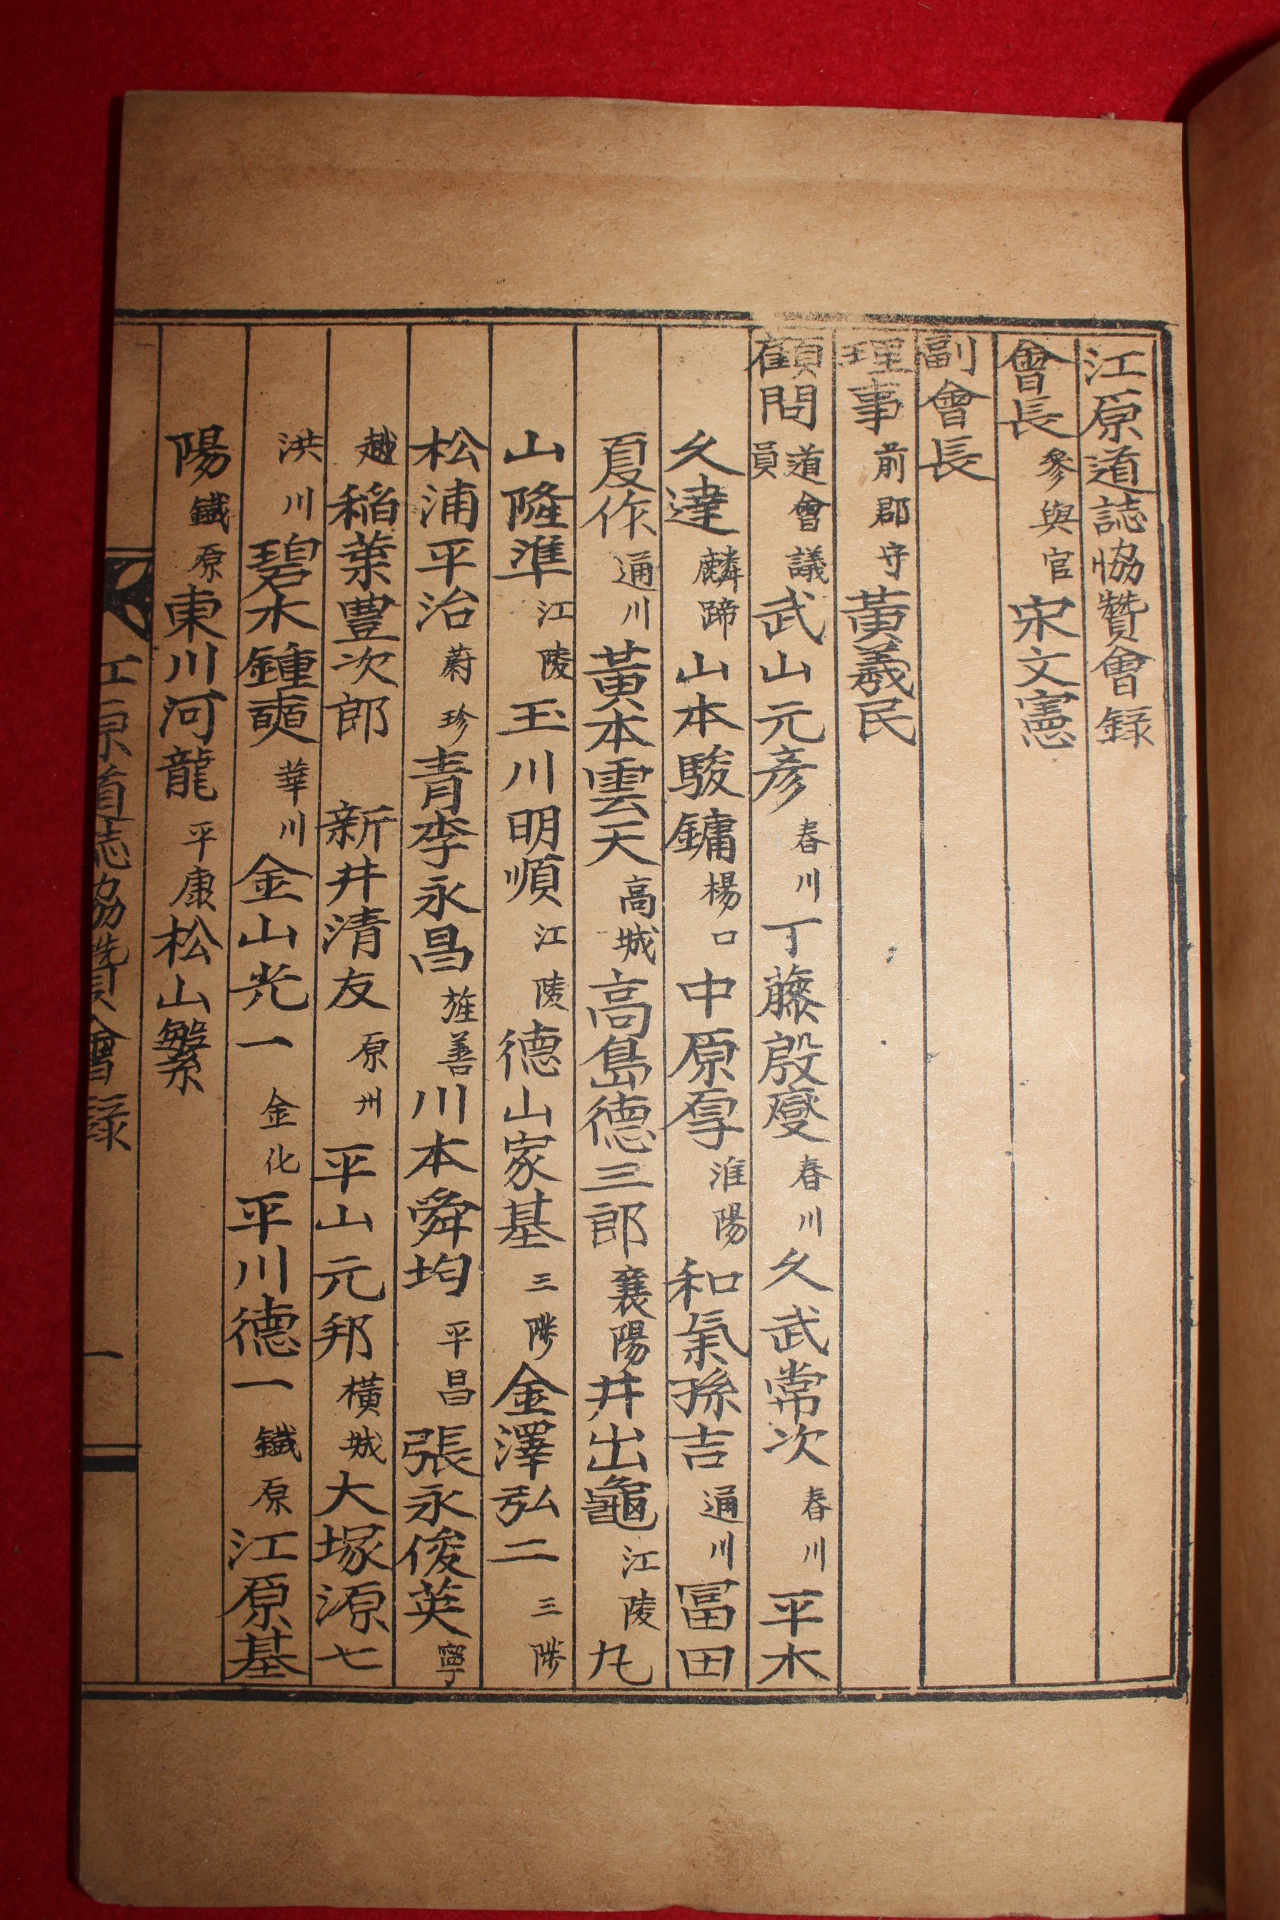 江原道誌協贊會録
會長 參與官 宋文憲
副會長
理事 前郡守 黃羲民
顧問 道會議員 武山元彦 春川 丁藤殷燮 春川 久武常次 春川 平木
久達 麟蹄 山本駿鏞 楊口 中原厚 淮陽 和氣孫吉 通川 冨田
夏作 通川 黃本雲天 高城 高島德三郎 襄陽 井出龜 江陵 丸
山隆準 江陵 玉川明順 江陵 德山家基 三陟 金澤弘二 三陟
松浦平治 蔚珍 青李永昌 旌善 川本舜均 平昌 張永俊英 寧
越 稲葉豊次郎 新井清友 原州 平山元邦 橫城 大塚源七
洪川 碧木鍾奭 華川 金山光一 金化 平川德一 鐵原 江原基
陽 鐵原 東川河龍 平康 松山繁
江原道誌協贊會録 一